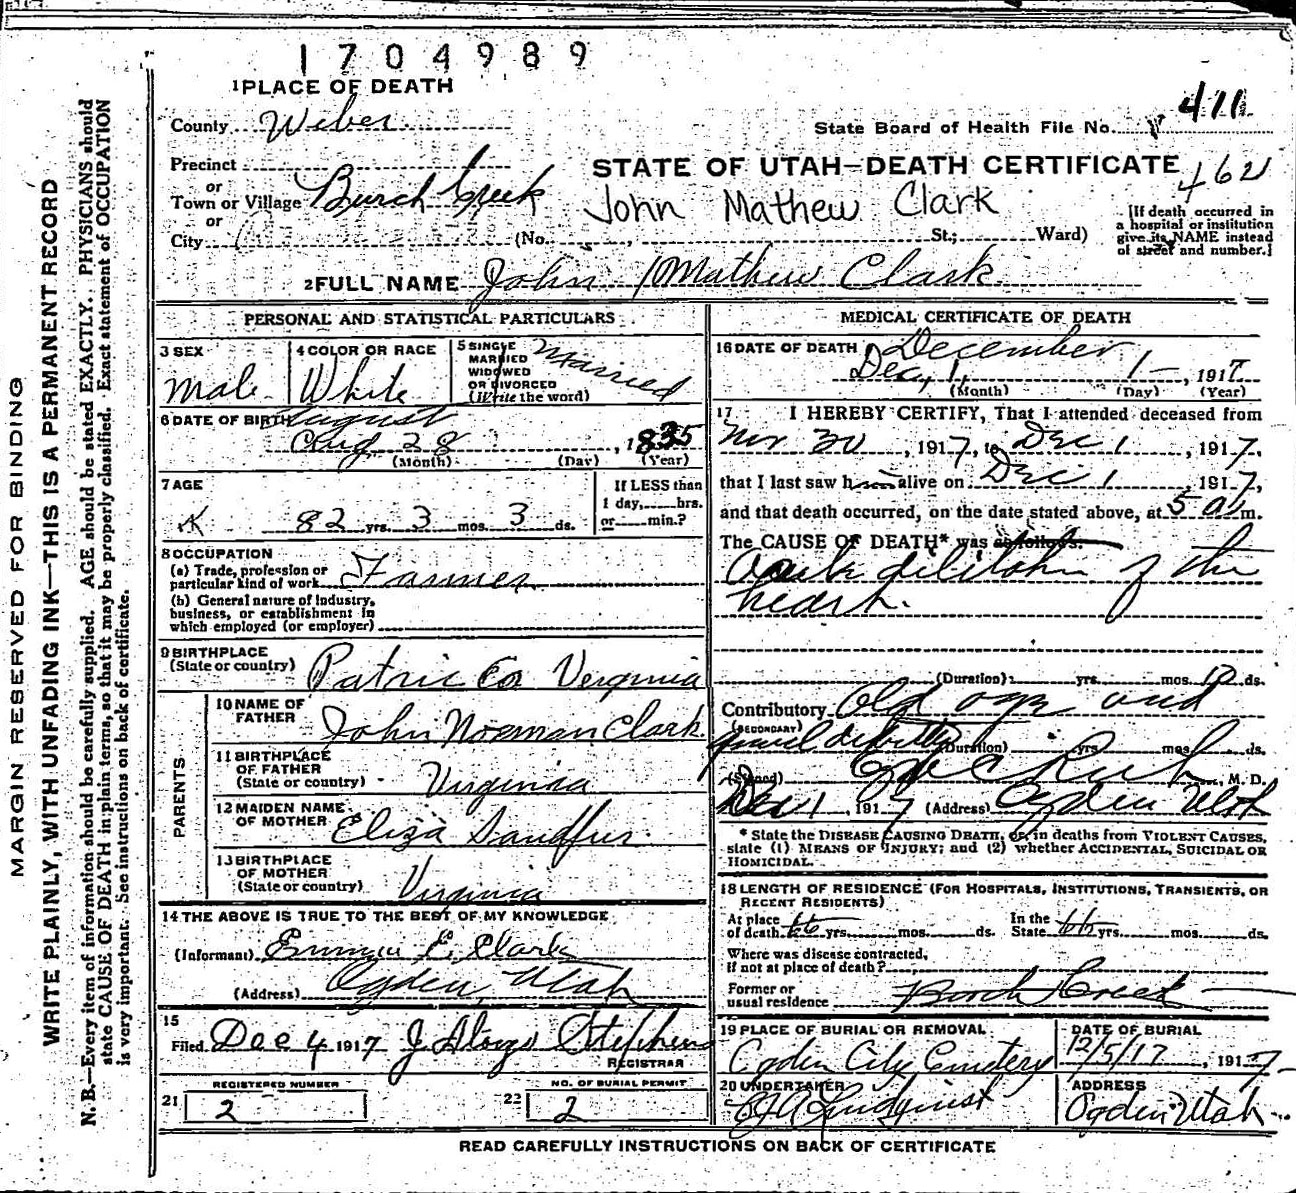 1704989
1 PLACE OF DEATH
County Weber
State Board of Health File No. 411
Precinct
STATE OF UTAH—DEATH CERTIFICATE
462
or
Town or Village Burch Creek
John Mathew Clark
or
City (No. , St.; Ward)
[If death occurred in
a hospital or institution
give its NAME instead
of street and number.]
2 FULL NAME John Mathew Clark
PERSONAL AND STATISTICAL PARTICULARS
3 SEX
Male
4 COLOR OR RACE
White
5 SINGLE
MARRIED
WIDOWED
OR DIVORCED
(Write the word)
Married
6 DATE OF BIRTH August
Aug 28, 1835
(Month) (Day) (Year)
7 AGE
82 yrs. 3 mos. 3 ds.
If LESS than
1 day, hrs.
or min.?
8 OCCUPATION
(a) Trade, profession or
particular kind of work Farmer
(b) General nature of industry,
business, or establishment in
which employed (or employer)
9 BIRTHPLACE
(State or country) Patric Co Verginia
PARENTS
10 NAME OF
FATHER John Norman Clark
11 BIRTHPLACE
OF FATHER
(State or country) Virginia
12 MAIDEN NAME
OF MOTHER Eliza Sandfur
13 BIRTHPLACE
OF MOTHER
(State or country) Virginia
14 THE ABOVE IS TRUE TO THE BEST OF MY KNOWLEDGE
(Informant) Emma E. Clark
(Address) Ogden, Utah
15
Filed Dec 4 1917 J Stephens
REGISTRAR
REGISTERED NUMBER
21 2
NO. OF BURIAL PERMIT
22 2
MEDICAL CERTIFICATE OF DEATH
16 DATE OF DEATH December
Dec, 1, 1 , 1917
(Month) (Day) (Year)
17 I HEREBY CERTIFY, That I attended deceased from
Nov 30, 1917, to Dec 1, 1917,
that I last saw him alive on Dec 1, 1917,
and that death occurred, on the date stated above, at 5 a m.
The CAUSE OF DEATH* was as follows:
of the
heart.
(Duration) yrs. mos. ds.
Contributory Old age and
(SECONDARY)
debility (Duration) yrs. mos. ds.
(Signed) , M. D.
Dec 1, 1917 (Address) Ogden Utah
* State the DISEASE CAUSING DEATH, or, in deaths from VIOLENT CAUSES,
state (1) MEANS OF INJURY; and (2) whether ACCIDENTAL, SUICIDAL OR
HOMICIDAL.
18 LENGTH OF RESIDENCE (FOR HOSPITALS, INSTITUTIONS, TRANSIENTS, OR
RECENT RESIDENTS)
At place
of death 66 yrs. mos. ds.
In the
State 66 yrs. mos. ds.
Where was disease contracted,
if not at place of death?
Former or
usual residence Burch Creek
19 PLACE OF BURIAL OR REMOVAL
Ogden City Cemetery
DATE OF BURIAL
12/5/17, 1917
20 UNDERTAKER
Lindquist
ADDRESS
Ogden Utah
READ CAREFULLY INSTRUCTIONS ON BACK OF CERTIFICATE
MARGIN RESERVED FOR BINDING
WRITE PLAINLY, WITH UNFADING INK—THIS IS A PERMANENT RECORD
N. B.—Every item of information should be carefully supplied. AGE should be stated EXACTLY. PHYSICIANS should
state CAUSE OF DEATH in plain terms, so that it may be properly classified. Exact statement of OCCUPATION
is very important. See instructions on back of certificate.